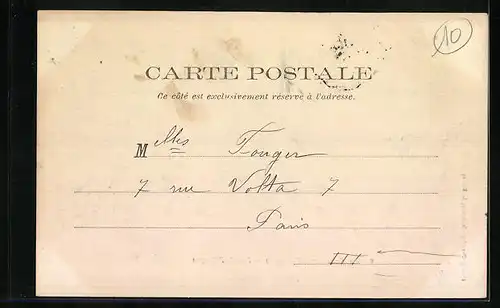 10
CARTE POSTALE
Ce côté est exclusivement réservé à l'adresse.
Melles Fouger
7 rue Volta 7
Paris
III